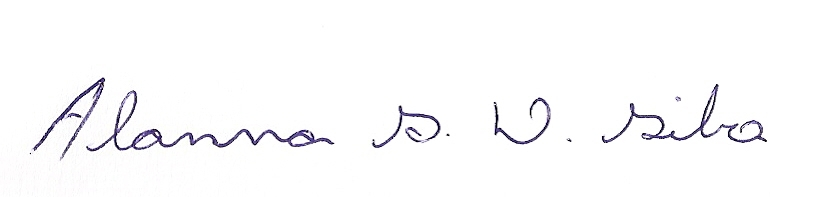 Alanna S. D. Silva